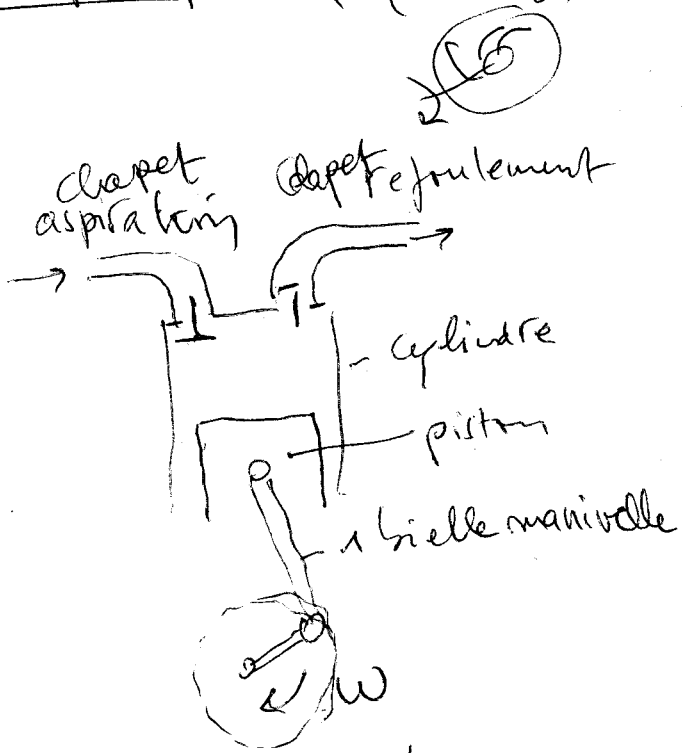 clapet
aspiration
clapet
refoulement
cylindre
piston
1 bielle manivelle
ω